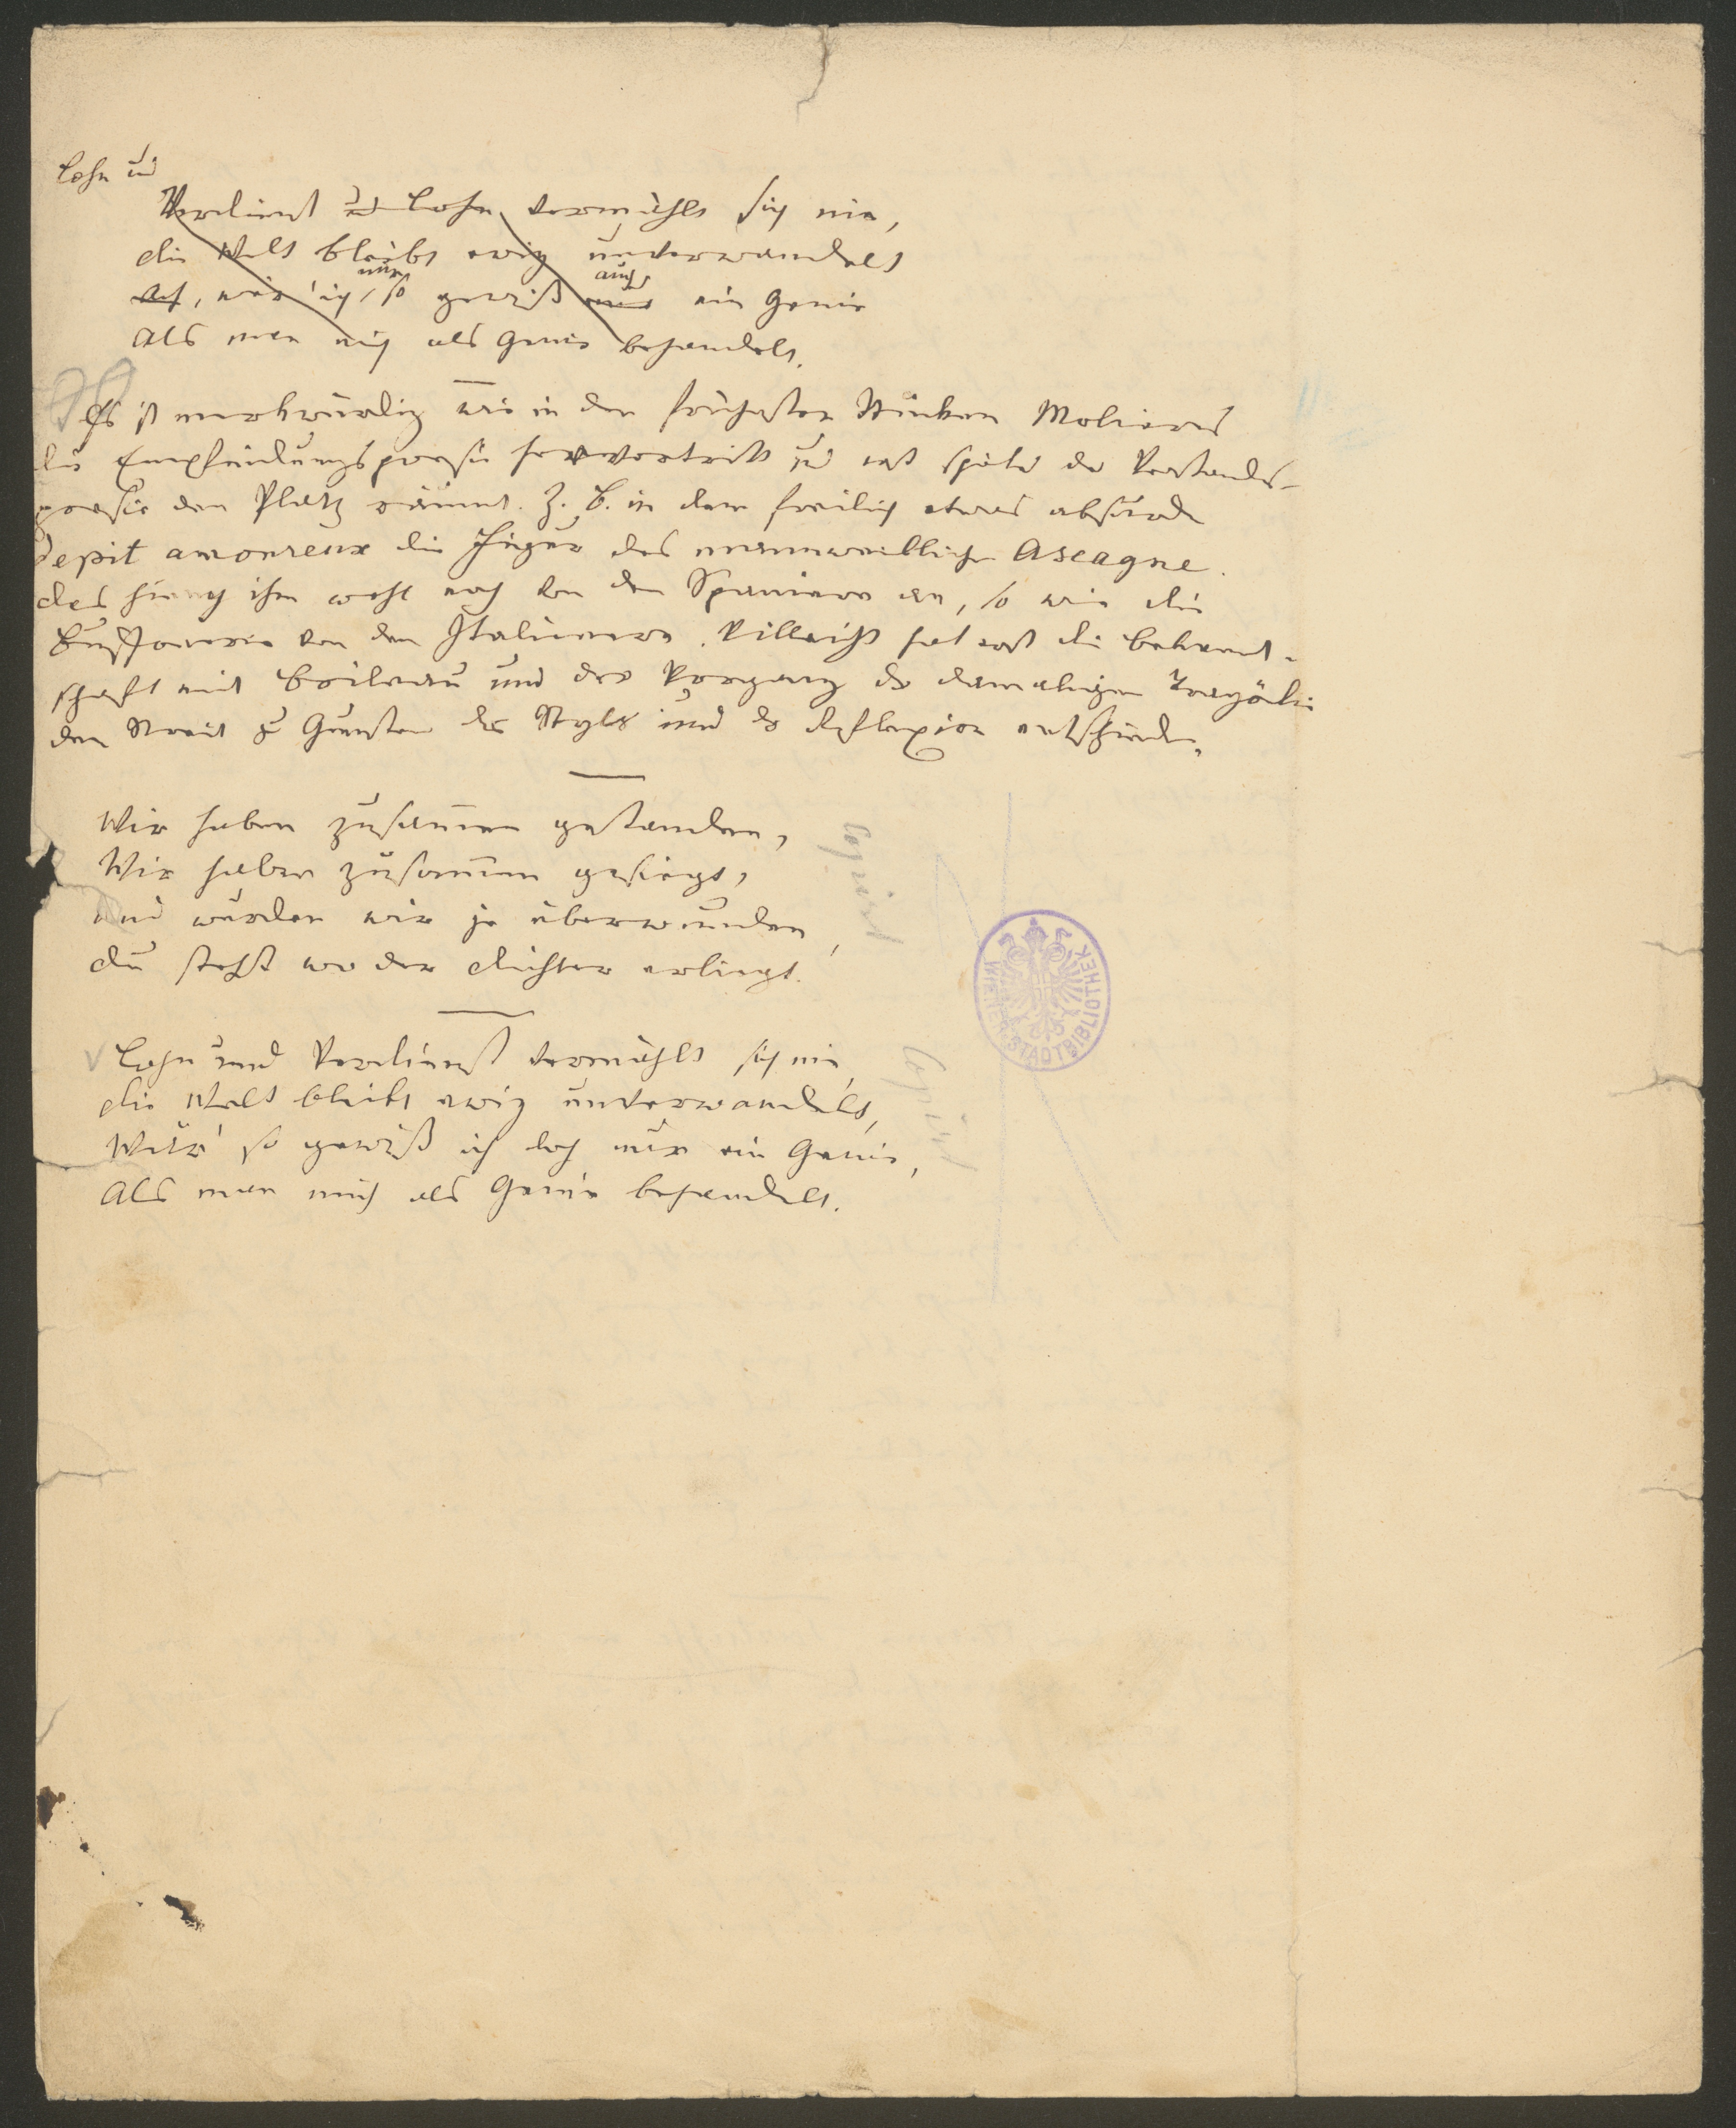 Lohn und
Verdienst und Lohn vermählt sich nie,
die Welt bleibt ewig unverwandelt
Ach, wär' ich nur so gewiß auch nur ein Genie
Als man mich als Genie behandelt.
Es ist merkwürdig wie in den frühesten Stücken Molieres
die Empfindungspoesie hervortritt und erst später der Verstandes-
poesie den Platz räumt. Z. B. in dem freilich etwas absurden
depit amoureux die Figur des mannweiblichen Ascagne.
das hieng ihm wohl noch von den Spaniern an, so wie die
Buffonerie von den Italienern. Villeicht hat erst die Bekannt-
schaft mit Boileau und der Vorgang der damaligen Tragödie
den Streit zu Gunsten des Styls und der Reflexion entschieden.
Wir haben zusammen gestanden,
Wir haben zusammen gesiegt,
und wurden wir je überwunden,
du stehst wo der Dichter erliegt.
Copirt
Lohn und Verdienst vermählt sich nie,
die Welt bleibt ewig unverwandelt,
Wär' so gewiß ich doch nur ein Genie,
Als man mich als Genie behandelt.
Copirt
WIENER STADTBIBLIOTHEK